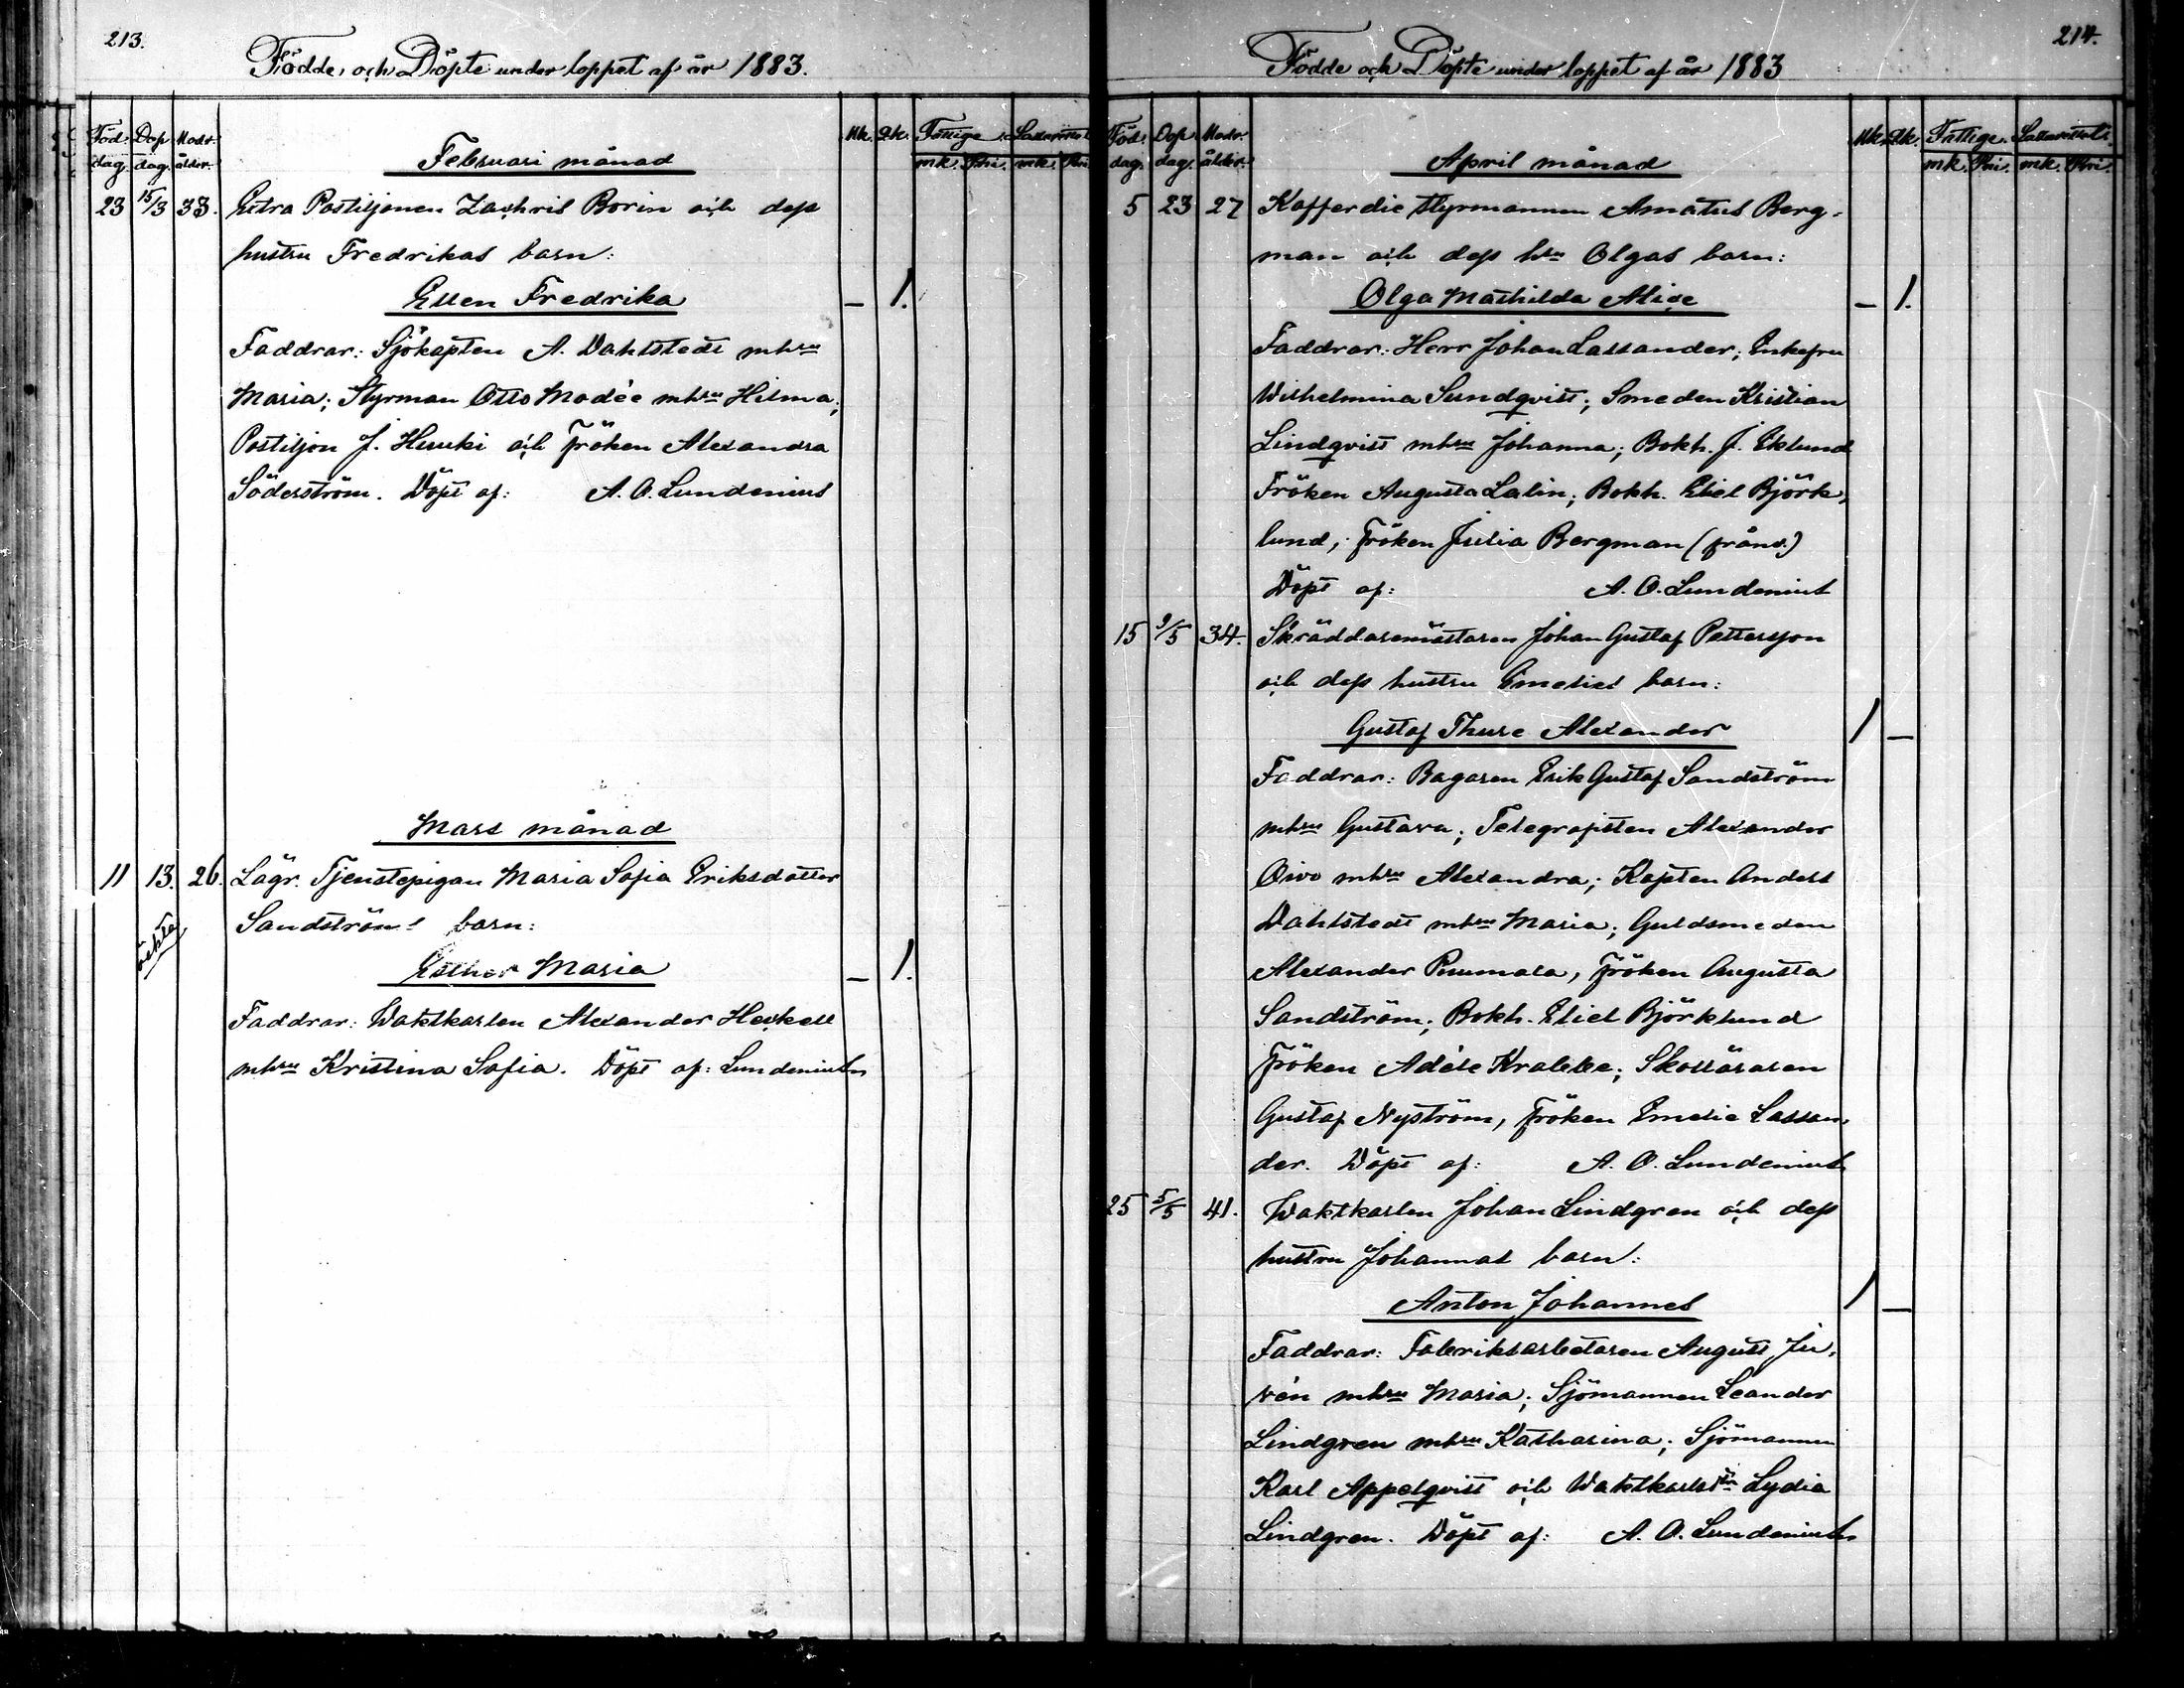 213.
Födde och Döpte under loppet af år 1883.
Föd. dag. Dop dag. Modr. ålder. Mk. Qk. Fattige mk. Pni. mk. Pni.
Februari månad
23 15/3 33. Extra Postiljonen Zachris Borin och dess
hustru Fredrikas barn:
Ellen Fredrika — 1.
Faddrar: Sjökapten A. Dahlstedt mhru
Maria; Styrman Otto Modée mhru Hilma;
Postiljon J. Heruki och Fröken Alexandra
Söderström. Döpt af: A. O. Lundenius
Mars månad
11 13. 26. Lägr. Tjenstepigan Maria Sofia Eriksdotter
Sandströms barn:
Esther Maria — 1.
Faddrar: Waktkarlen Alexander Heikell
mhru Kristina Sofia. Döpt af: Lundenius
214.
Födde och Döpte under loppet af år 1883
Föd. dag. Dop dag. Modr. ålder. Mk. Qk. Fattige mk. Pni. mk. Pni.
April månad
5 23 27 Kofferdie styrmannen Amatus Berg-
man och dess hru Olgas barn:
Olga Mathilda Alice — 1.
Faddrar: Herr Johan Lassander; Enkefru
Wilhelmina Sundqvist; Smeden Kristian
Lindqvist mhru Johanna; Bokh. J. Eklund
Fröken Augusta Lalin; Bokh. Eliel Björk-
lund, Fröken Julia Bergman (frånv.)
Döpt af: A. O. Lundenius
15 9/5 34. Skräddaremästaren Johan Gustaf Pettersson
och dess hustru Emelies barn:
Gustaf Thure Alexander 1 —
Faddrar: Bagaren Erik Gustaf Sandström
mhru Gustava; Telegrafisten Alexander
Oivo mhru Alexandra; Kapten Anders
Dahlstedt mhru Maria; Guldsmeden
Alexander Puumala, Fröken Augusta
Sandström; Bokh. Eliel Björklund
Fröken Adéle Krabbe; Skolläraren
Gustaf Nyström, Fröken Emelie Lassan-
der. Döpt af: A. O. Lundenius
25 5/5 41. Waktkarlen Johan Lindgren och dess
hustru Johannas barn:
Anton Johannes 1 —
Faddrar: Fabriksarbetaren August Ju-
vén mhru Maria; Sjömannen Leander
Lindgren mhru Katharina; Sjömannen
Karl Appelqvist och Waktkarlsdr Lydia
Lindgren. Döpt af: A. O. Lundenius